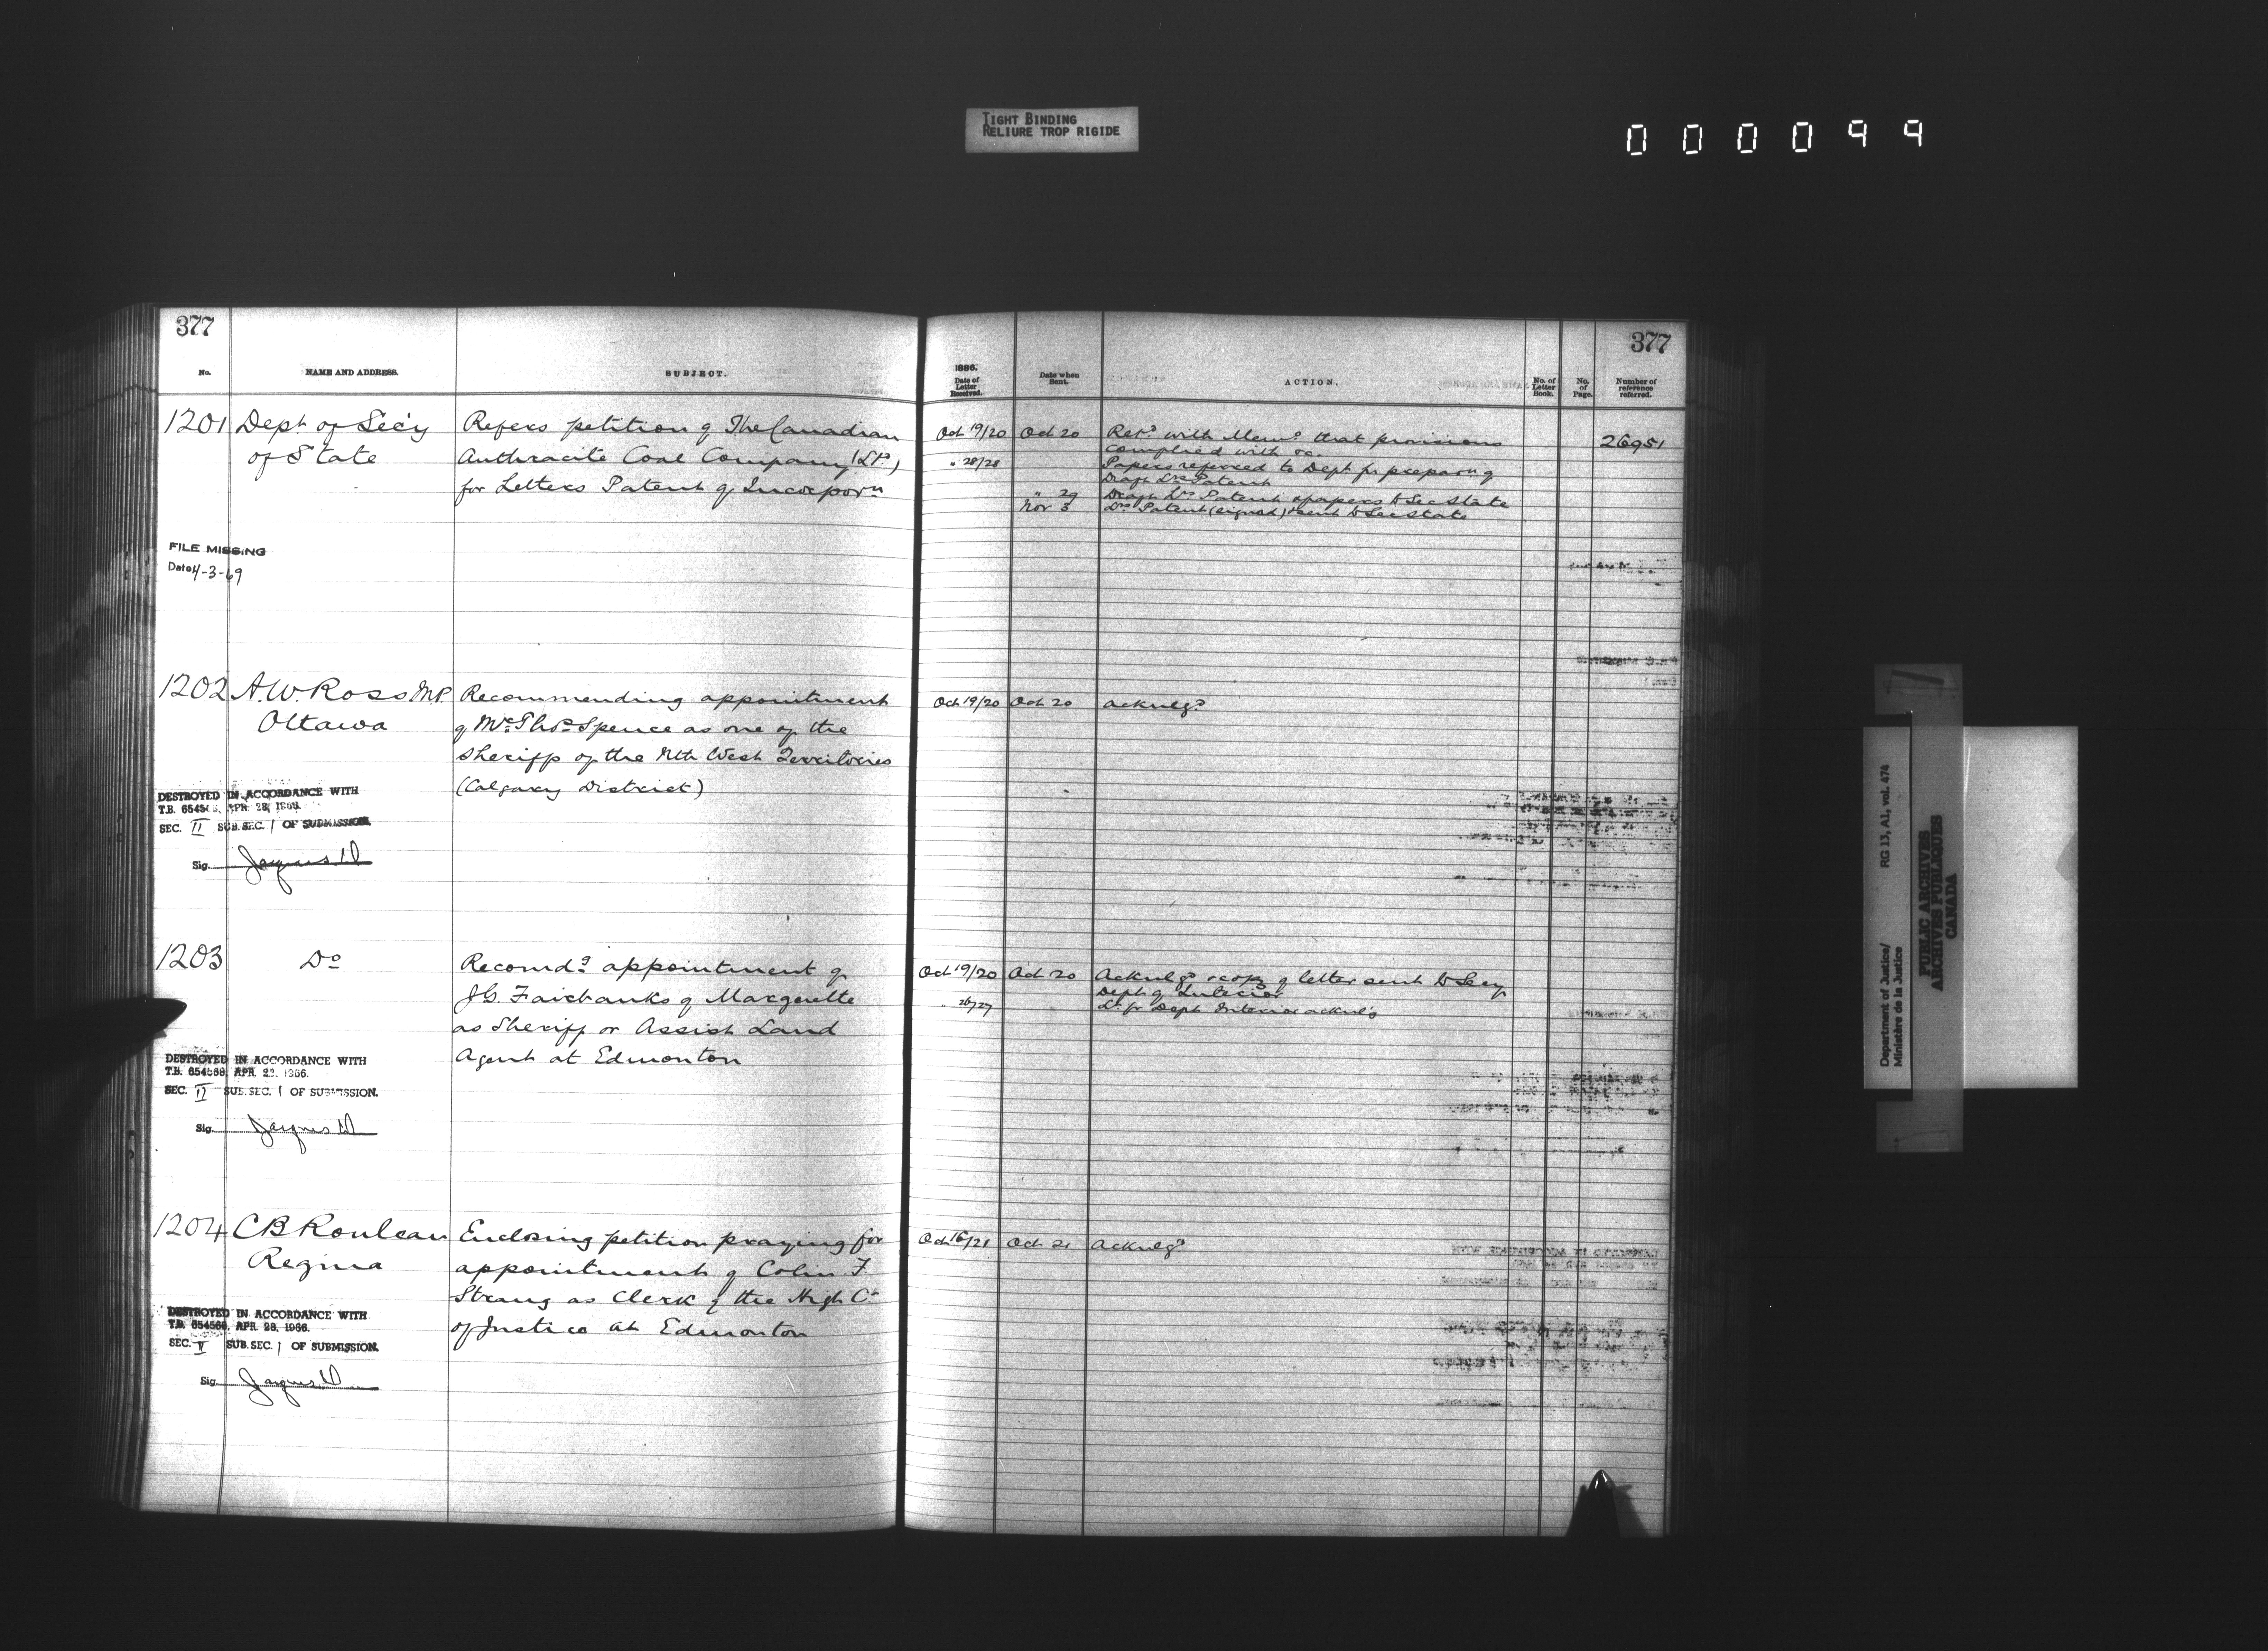 TIGHT BINDING
RELIURE TROP RIGIDE
000099
377
No.
NAME AND ADDRESS.
SUBJECT.
1201 Dept of Sec'y
of State
Refers petition of The Canadian
Anthracite Coal Company (Ld),
for Letters Patent of Incorporn
FILE MISSING
Date 4-3-69
1202 A.W. Ross M.P.
Ottawa
Recommending appointment
of Mr Thos Spence as one of the
Sheriffs of the Nth West Territories
(Calgary District)
DESTROYED IN ACCORDANCE WITH
T.B. 6545 APR. 28, 1966.
SEC. II SUB.SEC. 1 OF SUBMISSION.
Sig.
1203 Do
Recomdg appointment of
J.G. Fairbanks of Marguette
as Sheriff or Assist Land
Agent at Edmonton
DESTROYED IN ACCORDANCE WITH
T.B. 654568, APR. 22. 1966.
SEC. II SUB.SEC. 1 OF SUBMISSION.
Sig.
1204 CB Rouleau
Regina
Enclosing petition praying for
appointment of Colin F.
Strang as Clerk of the High Ct
of Justice at Edmonton
DESTROYED IN ACCORDANCE WITH
T.B. 654568, APR. 28, 1966.
SEC. V SUB.SEC. 1 OF SUBMISSION.
Sig.
377
1886.
Date of
Letter
Received.
Date when
Sent.
ACTION.
No. of
Letter
Book.
No.
of
Page.
Number of
reference
referred.
Oct 19/20 Oct 20 Retd with Memo that provisions 26951
complied with &c.
" 28/28 Papers referred to Dept for preparn of
Draft Lrs Patent
" 29 Draft Lrs Patent & papers to Sec State
Nov 3 Lrs Patent (signed) sent to Sec State
Oct 19/20 Oct 20 Acknlgd
Oct 19/20 Oct 20 Acknlgd & copy of letter sent to Secy
Dept of Interior
" 26/27 Lr fr Dept Interior acknlg
Oct 16/21 Oct 21 Acknlgd
Department of Justice/ RG 13, A1, vol. 474
Ministère de la Justice
PUBLIC ARCHIVES
ARCHIVES PUBLIQUES
CANADA